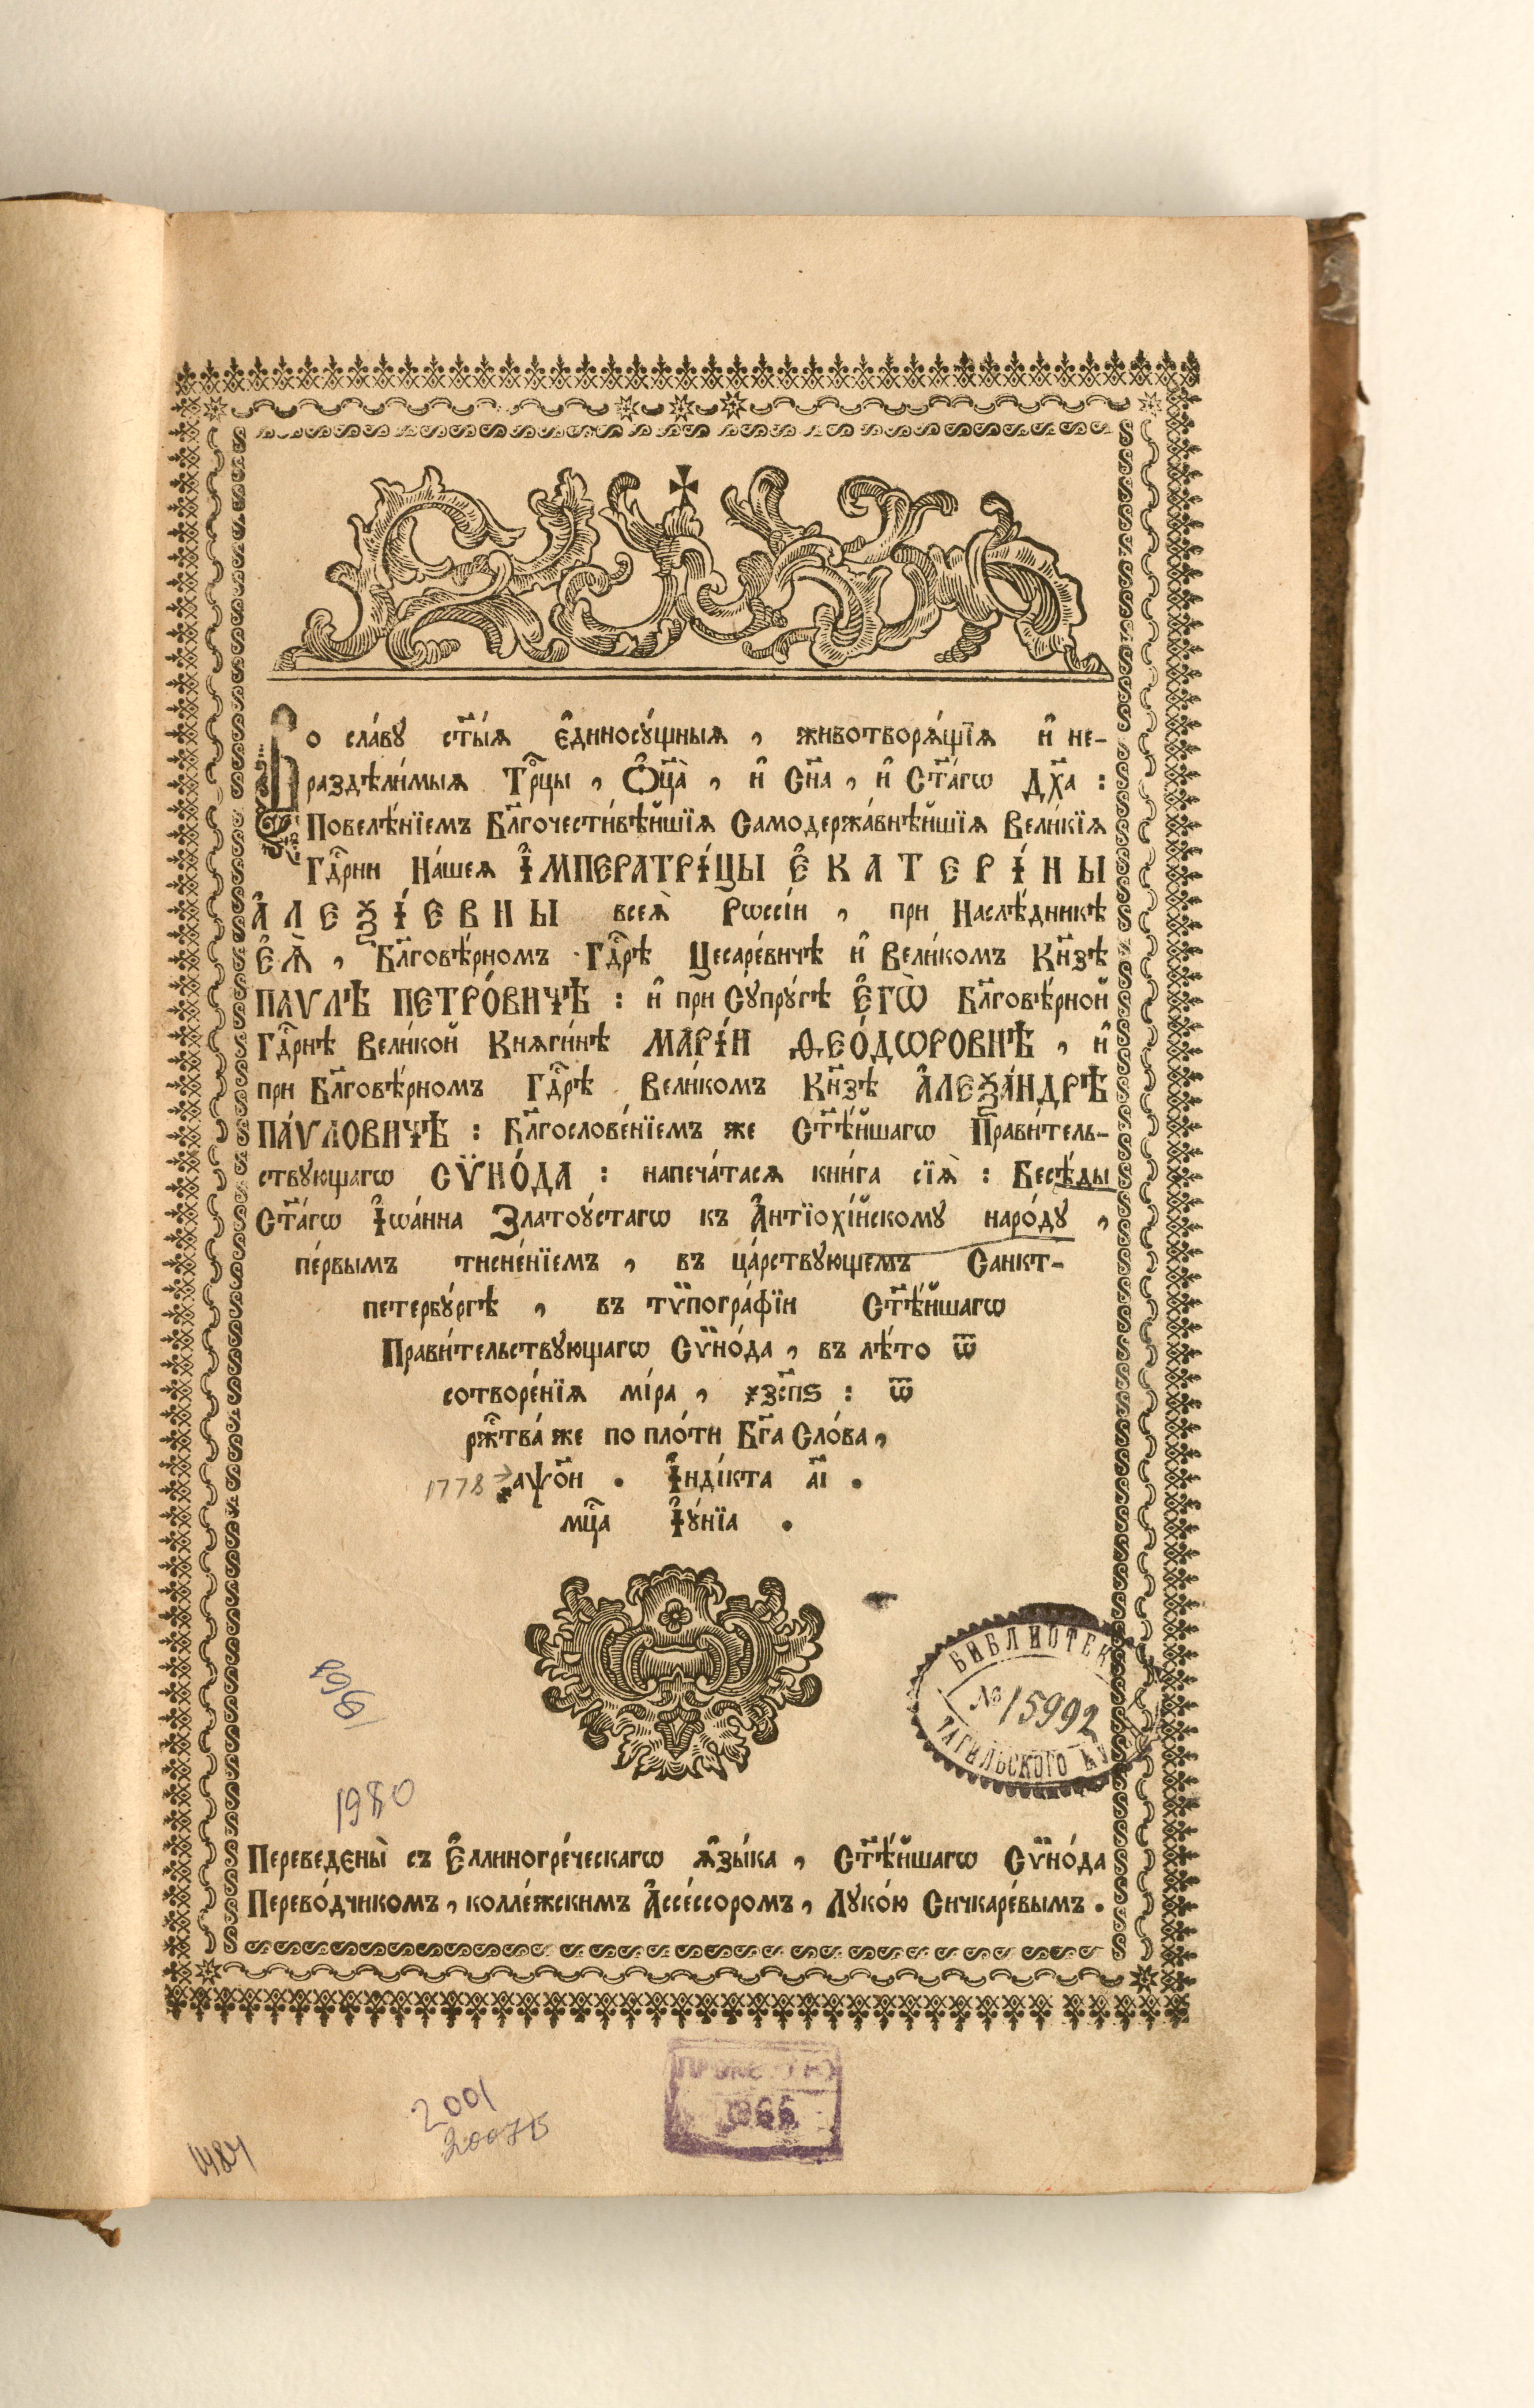 Во сла́вꙋ ст҃ы́ѧ є҆диносꙋ́щныѧ , животворѧ́щїѧ и҆ не-
раздѣли́мыѧ Трⷪ҇цы , Ѻ҆ц҃а̀ , и҆ Сн҃а , и҆ Ст҃а́гѡ Дх҃а :
Повелѣ́нїемъ Бл҃гочести́вѣйшїѧ Самодержа́внѣйшїѧ Вели́кїѧ
Гдⷭ҇рни На́шеѧ І҆МПЕРАТРІ́ЦЫ Є҆КАТЕРІ́НЫ
А҆ЛЕѮІ́ЕВНЫ всеѧ̀ Рѡссі́и , при Наслѣ́дникѣ
Є҆Ѧ̀ , Бл҃говѣ́рномъ Гдⷭ҇рѣ Цесаре́вичѣ и҆ Вели́комъ Кн҃зѣ
ПАѴЛѢ ПЕТРО́ВИЧѢ : и҆ при Сꙋпрꙋ́гѣ Є҆ГѠ̀ Бл҃говѣ́рной
Гдⷭ҇рнѣ Вели́кой Кнѧги́нѣ МАРІ́И ѲЕО́ДѠРОВНѢ , и҆
при Бл҃говѣ́рномъ Гдⷭ҇рѣ Вели́комъ Кн҃зѣ А҆ЛЕѮА́НДРѢ
ПА́ѴЛОВИЧѢ : Бл҃гослове́нїемъ же Ст҃ѣ́йшагѡ Прави́тель-
ствꙋющагѡ СѶНО́ДА : напеча́тасѧ кни́га сїѧ̀ : Бесѣ́ды
Ст҃а́гѡ І҆ѡа́нна Златоꙋ́стагѡ къ А҆нтїохі́йскомꙋ наро́дꙋ ,
пе́рвымъ тисне́нїемъ , въ ца́рствꙋющемъ Санкт-
петербꙋ́ргѣ , въ тѷпогра́фїи Ст҃ѣ́йшагѡ
Прави́тельствꙋющагѡ Сѷно́да , въ лѣ́то ѿ
сотворе́нїѧ мі́ра , ҂зс҃пѕ : ѿ
ржⷭ҇тва́ же по пло́ти Бг҃а Сло́ва ,
1778 → ҂аѱо҃и . І҆нді́кта а҃і .
мцⷭ҇а І҆ꙋ́нїа .
1968
БИБЛИОТЕК
№ 15992
ТАГИЛЬСКОГО
1980
Переведены̀ съ Є҆ллиногре́ческагѡ ѧ҆зы́ка , Ст҃ѣ́йшагѡ Сѷно́да
Перево́дчикомъ , колле́жскимъ А҆ссе́ссоромъ , Лꙋко́ю Сичкаре́вымъ .
1966
2001
1484